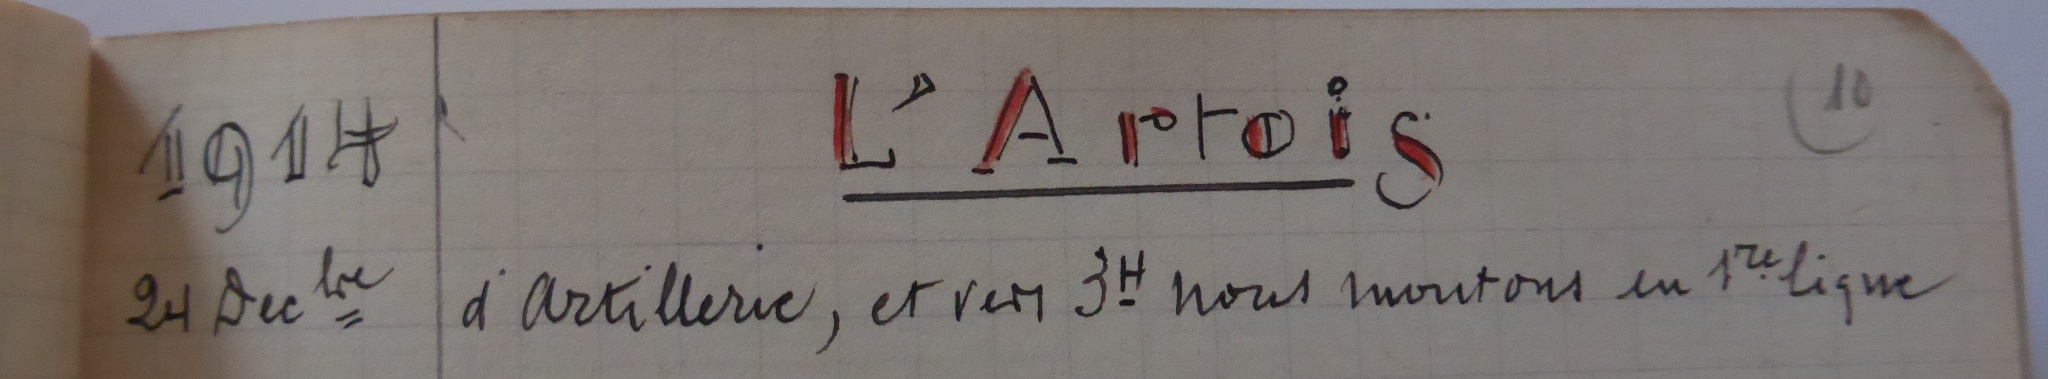 1914 L'Artois 10
24 Decbre d'Artillerie, et vers 3H nous montons en 1re ligne